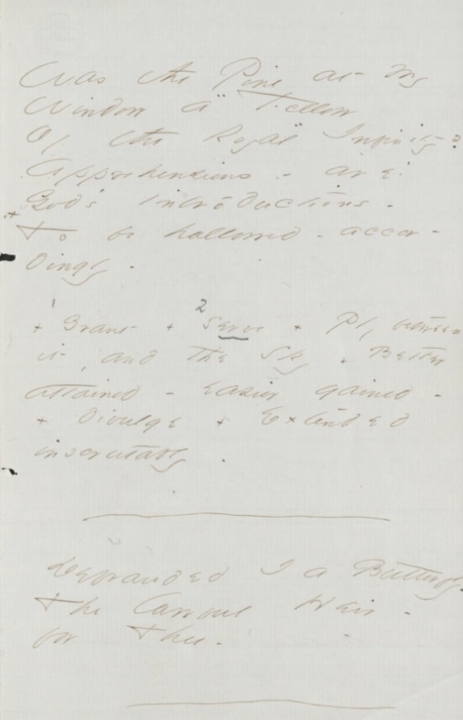 Was the Pine at my
Window a "Fellow
Of the Royal" Infinity?
Apprehensions - are
God's introductions -
+ To be hallowed - accor -
dingly -
1 2
+ Grant - + Serve + Ply, between
it, and the Sky + Better
attained - easier gained -
+ Divulge + Extended
inscrutably.
Defrauded I a Butterfly -
The lawful Heir -
for Thee -